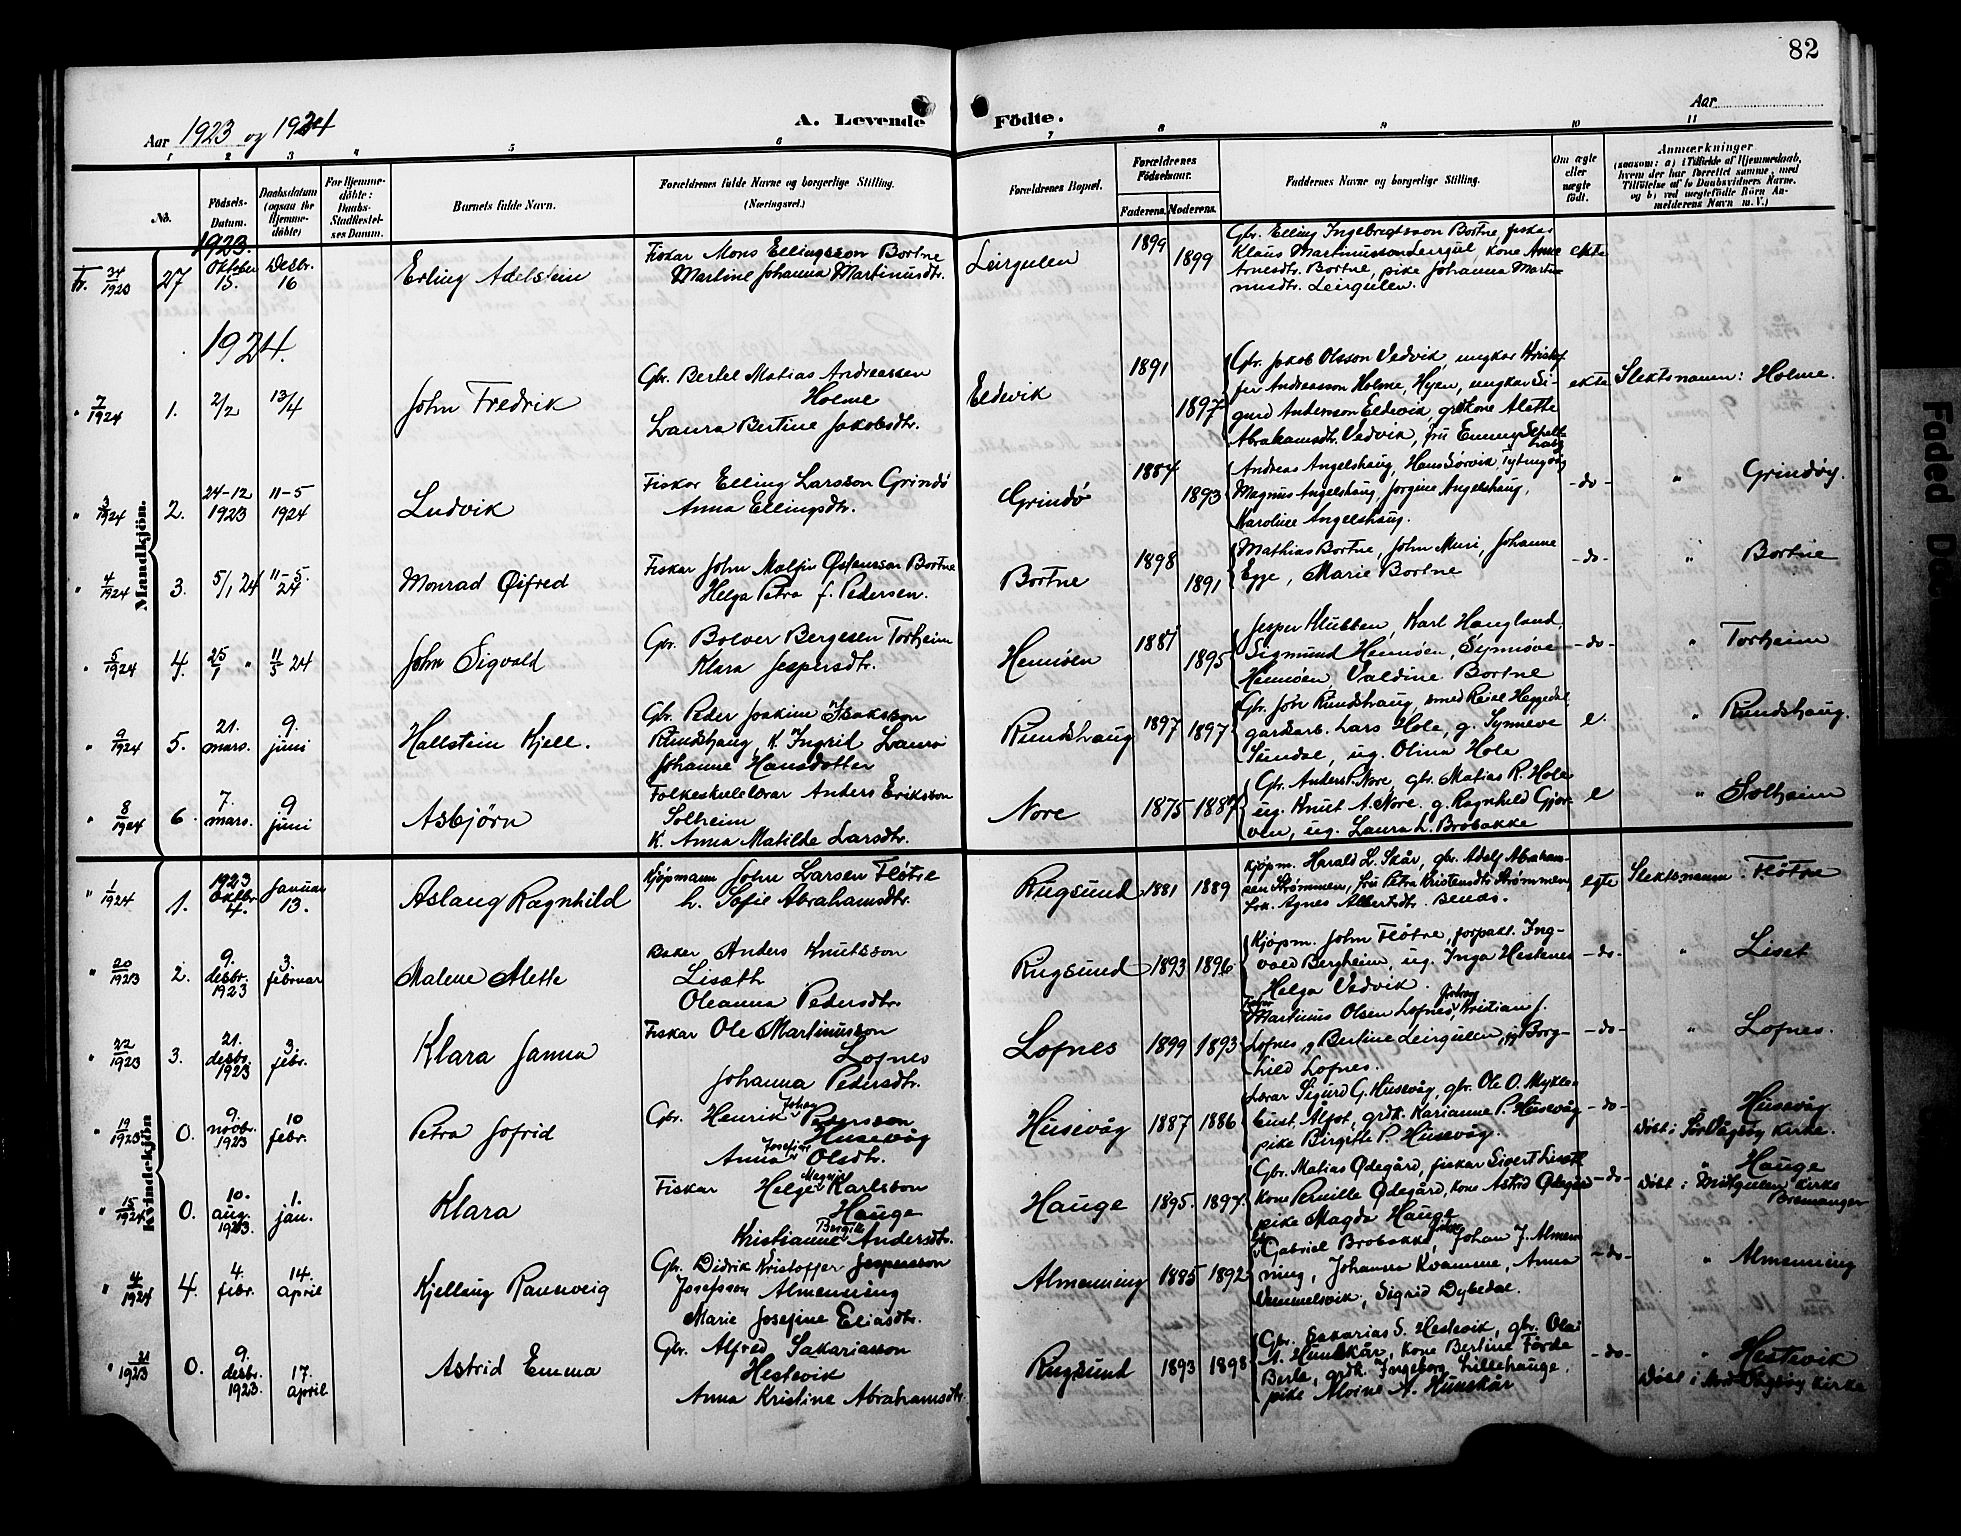 82
Aar 1923 og 1924
A. Levende Födte.
Aar
1 2 3 4 5 6 7 8 9 10 11
No.
Födsels-Datum.
Daabsdatum (ogsaa for Hjemmedöbte)
For Hjemmedöbte: Daabs-Stadfæstelses Datum.
Barnets fulde Navn.
Forældrenes fulde Navne og borgerlige Stilling. (Næringsvei.)
Forældrenes Bopæl.
Forældrenes Födselsaar.
Faderens. Moderens.
Faddernes Navne og borgerlige Stilling.
Om ægte eller uægte födt.
Anmærkninger
(saasom: a) i Tilfælde af Hjemmedaab, hvem der har forrettet samme, med Tilföielse af to Daabsvidners Navne. og b) ved uægtefödte Börn Anmelderens Navn m. V.)
Mandkjön.
1923.
Fr. 34/1923 27 Oktober 15. Desbr. 16 Erling Adelstein
Fiskar Mons Ellingsson Bortne
Martine Johanna Martinusdtr.
Leirgulen 1899 1899
Gbr. Elling Ingebregtsson Bortne, fiskar
Klaus Martinusson Leirgul, kone Anna
Arnesdtr. Bortne, pike Johanna Marti-
nusdtr. Leirgulen.
ekte
1924.
" 7/1924 1. 2/2 13/4 John Fredrik
Gbr. Bertel Matias Andreassen
Holme
Laura Bertine Jakobsdtr.
Eldevik 1891 1897
Gbr. Jakob Olsson Vedvik, ungkar Kristof
fer Andreasson Holme, Hyen, ungkar Si-
gurd Andersson Eldevik, grdkone Alette
Abrahamsdtr. Vedvik, fru Emmy
ekte Slektsnamn: Holme.
" 3/1924 2. 24-12 1923 11-5 1924 Ludvik
Fiskar Elling Larsson Grindø
Anna Ellingsdtr.
Grindø 1884 1893
Andreas Angelshaug, Hans Sørvik
Magnus Angelshaug, Jorgine Angelshaug,
Karoline Angelshaug.
-do- " Grindøy.
" 4/1924 3. 5/1 24 11-5-24 Monrad Øifred
Fiskar John Molfin Østensson Bortne
Helga Petra f. Pedersen.
Bortne 1898 1891
Mathias Bortne, John Muri, Johanne
Egge, Marie Bortne
-do- " Bortne
" 5/1924 4. 25/1 " 11/5 24 John Sigvald
Gbr. Bolver Bergesen Torheim
Klara Jespersdtr.
Hennøen 1881 1895
Jesper Klubben, Karl Haugland,
Sigmund Hennøen, Synnøve
Hennøen Valdine Bortne
-do- " Torheim
" 9/1924 5. 21. mars. 9. juni Hallstein Kjell.
Gbr. Peder Joakim Isaksson
Rundshaug, K. Ingrid Laura
Johanne Hansdotter
Rundshaug 1897 1897
Gbr. Jørn Rundshaug, smed Reial Heggedal
gardarb. Lars Hole, g. Synneve
Sundal, ug. Olina Hole
e. " Rundshaug.
" 8/1924 6. 7. mars. 9 juni Asbjörn
Folkeskulelærar Anders Eriksson
Solheim
K. Anna Matilde Larsdtr.
Nore 1875 1887
Gbr. Anders P. Nore, gbr. Matias R. Hole
ug. Knut A. Nore. g. Ragnhild Gjør-
ven, ug. Laura L. Brobakke
e " Solheim
Kvindekjön
" 1/1924 1. 1923 Oktbr. 4. Januar 13. Aslaug Ragnhild
Kjøpmann John Larsen Fløtre
h. Sofie Abrahamsdtr.
Rugsund 1881 1889
Kjøpm. Harald L. Skår, gbr. Adolf Abraham-
sen Strømmen, fru Petra Kristendtr. Strømmen,
frk. Agnes Albertsdtr.
egte Slektsnamn: Fløtre
" 20/1923 2. 9. desbr. 1923 3. februar Malene Alette
Baker Anders Knutsson
Liseth
Oleanna Pedersdtr.
Rugsund 1893 1896
Kjøpm. John Fløtre, forpakt. Ing-
vald Bergheim, ug. Inga Hestenes
Helga Vedvik.
-do- " Liset
" 22/1923 3. 21. desbr. 1923 3. febr. Klara Janna
Fiskar Ole Martinusson
Lofnes
Johanna Pedersdtr.
Lofnes 1899 1893
Fiskar Martinus Olsen Lofnes, Kristian J.
Lofnes, Bertine Leirgulen, Borg-
hild Lofnes.
-do- " Lofnes.
" 19/1923 0. 9. novbr. 1923 10 febr. Petra Jofrid
Gbr. Henrik Johan Petersson
Husevåg
Anna Josefine Olsdtr.
Husevåg 1887 1886
Lærar Sigurd G. Husevåg, gbr. Ole O. Mykle-
bust. Ålfot, grdk. Karianne P. Husevåg
pike Birgitte P. Husevåg.
-do- Husevåg
Døbt i Sør Vågsøy Kirke.
" 15/1924 0. 10. aug. 1923. 1. jan. Klara
Fiskar Helge Magnus Karlsson
Hauge
Kristianne Bergitte Andersdtr.
Hauge 1895. 1897.
Gbr. Matias Ødegård, fiskar Sivert Liset
kone Pernille Ødegård, kone Astrid Ødegård
pike Magda Hauge
-do- " Hauge
Døbt i Midtgulen Kirke
Bremanger
" 4/1924 4. 4. febr. 14. April Kjellaug Rannveig
Gbr. Didrik Kristoffer Jespersson
Josefsson Almenning
Marie Josefine Eliasdtr.
Almenning 1885 1892
Gbr. Gabriel Brobakke, Johan J. Almen
ning, Johanna Kvamme, Anna
Vemmelsvik, Sigrid Dybedal.
-do- " Almenning
" 21/1923 0. 9. desbr. 1923. 17. April Astrid Emma
Gbr. Alfred Sakariasson
Hestevik
Anna Kristine Abrahamsdtr.
Rugsund 1893 1898
Gbr. Sakarias S. Hestevik, gbr. Ola
A. Hunskår, kone Bertine Førde
Berle, grdk. Ingeborg Lillehauge,
pike Alvine A. Hunskår
-do- " Hestevik
Døbt i Nord Vågsøy Kirke
Faded